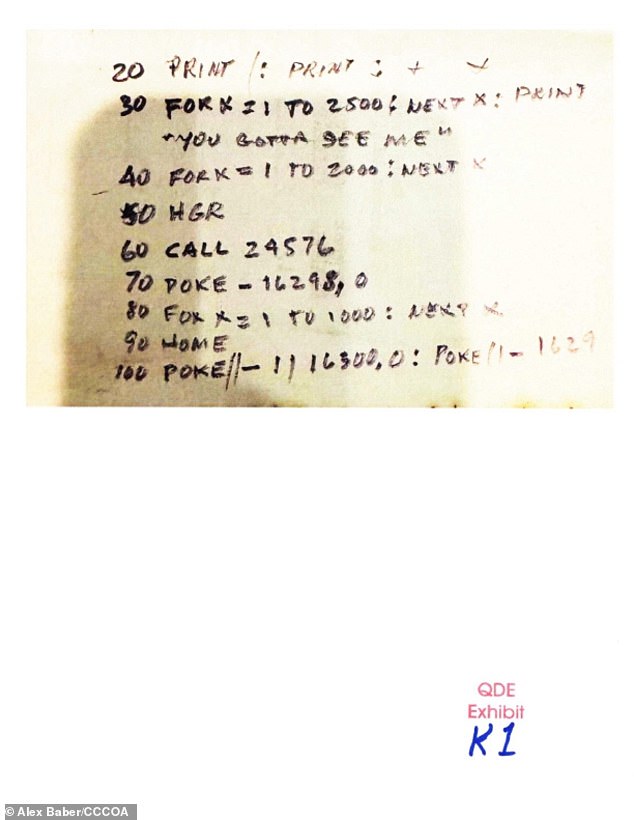 20 PRINT : PRINT :
30 FOR X = 1 TO 2500 : NEXT X : PRINT
"YOU GOTTA SEE ME"
40 FOR X = 1 TO 2000 : NEXT X
50 HGR
60 CALL 24576
70 POKE - 16298, 0
80 FOR X = 1 TO 1000 : NEXT X
90 HOME
100 POKE // - 1) 16300, 0 : POKE // - 1629
QDE
Exhibit
K1
© Alex Baber/CCCOA